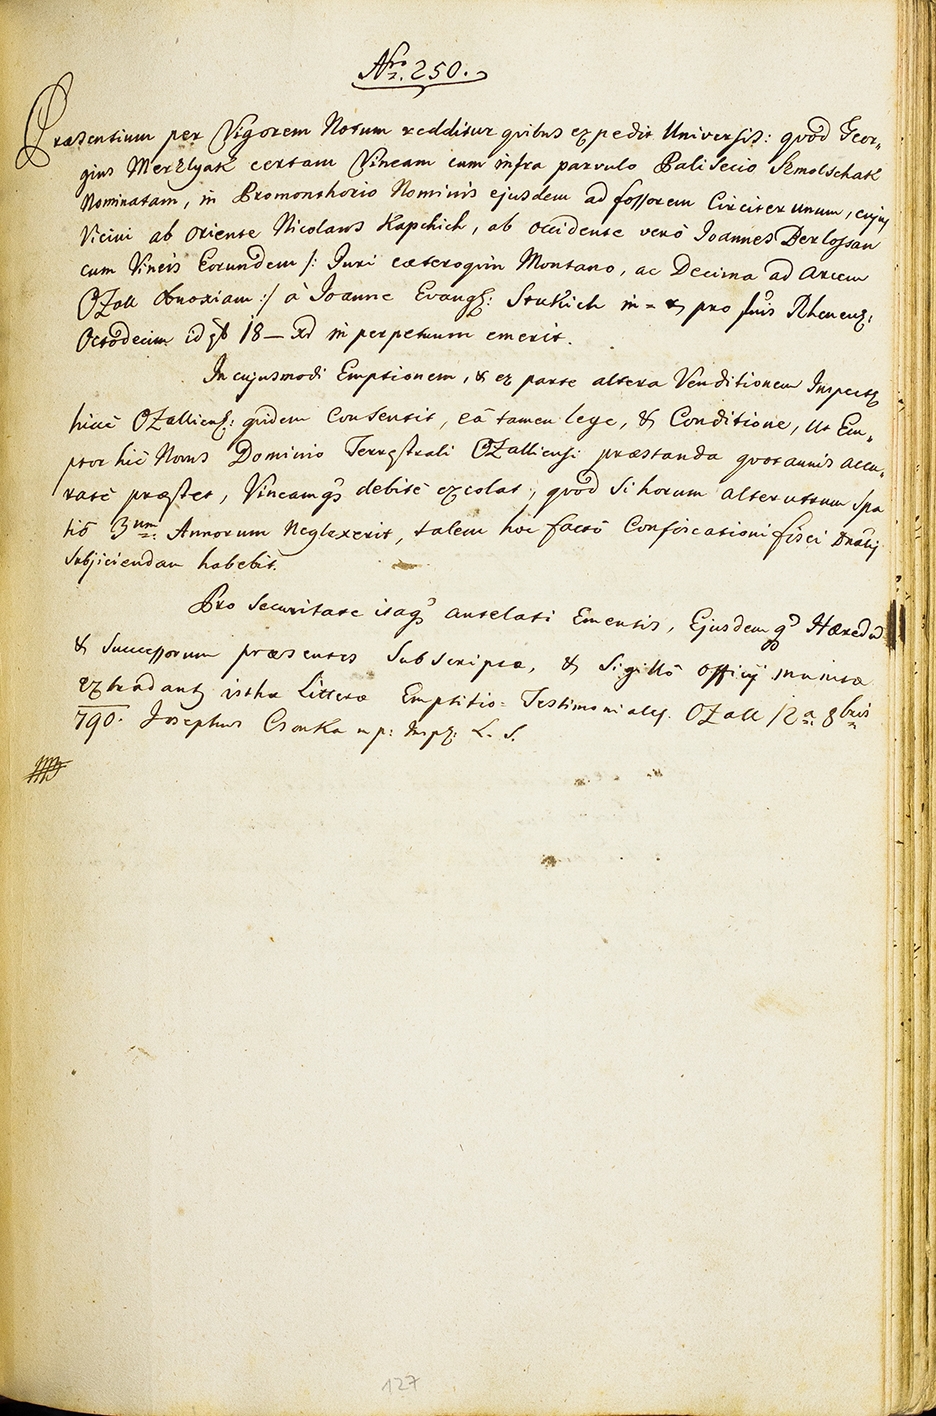 Nro. 250.
Præsentium per Vigorem Notum redditur quibus expedit Universis: quòd Geor„
gius Merzlyak certam Vineam cum infra parvulo Palisecio Semolschak
Nominatam, in Promonthorio Nominis ejusdem ad fossorem Circiter unum, cujus
Vicini ab oriente Nicolaus Kapchich, ab occidente verò Joannes Derlossan
cum Vineis Eorundem /: Juri cæteroquin Montano, ac Decima ad Arcem
OZall obnoxiam :/ à Joanne Evang: Stukich in- & pro suis Rhenens:
Octodecim id est 18 — xd in perpetuum emerit.
In cujusmodi Emptionem, & ex parte altera Venditionem Inspect
hicce OZalliens: quidem Consentit, eâ tamen lege, & Conditione, ut Em„
ptor hic Novus Dominio Terrestrali OZalliensi præstanda quotannis accu„
ratè præstet, Vineamqs debitè excolat; quòd si horum alterutrum spa
tiô 3um Annorum Neglexerit, talem hoc factô Confiscationi fisci Dnalis
subjiciendam habebit.
Pro Securitate itaqs antelati Ementis, Ejusdemqs Hæredum
& Successorum præsentes Subscriptæ, & Sigillô officij munitæ
extradantur isthæ Litteræ Emptitio= Testimoniales. OZall 12a 8bris
790. Josephus Csonka mp: Insp: L. S.
127